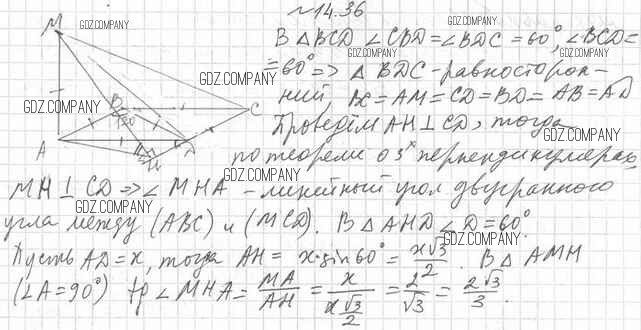 №14.36
В △BCD ∠CBD=∠BDC=60°, ∠BCD=
=60° => △BDC-равносторон-
ний, BC=AM=CD=BD=AB=AD
Проведём AH⊥CD, тогда
по теореме о 3х перпендикулярах
MH⊥CD => ∠MHA - линейный угол двугранного
угла между (ABC) и (MCD). В △AHD ∠D=60°.
Пусть AD=x, тогда AH= x·sin60°= x√3/2. В △AMH
(∠A=90°) tg∠MHA= MA/AH = x/(x√3/2) = 2/√3 = 2√3/3.
M
B
120
C
A
D
H
GDZ.COMPANY
GDZ.COMPANY
GDZ.COMPANY
GDZ.COMPANY
GDZ.COMPANY
GDZ.COMPANY
GDZ.COMPANY
GDZ.COMPANY
GDZ.COMPANY
GDZ.COMPANY